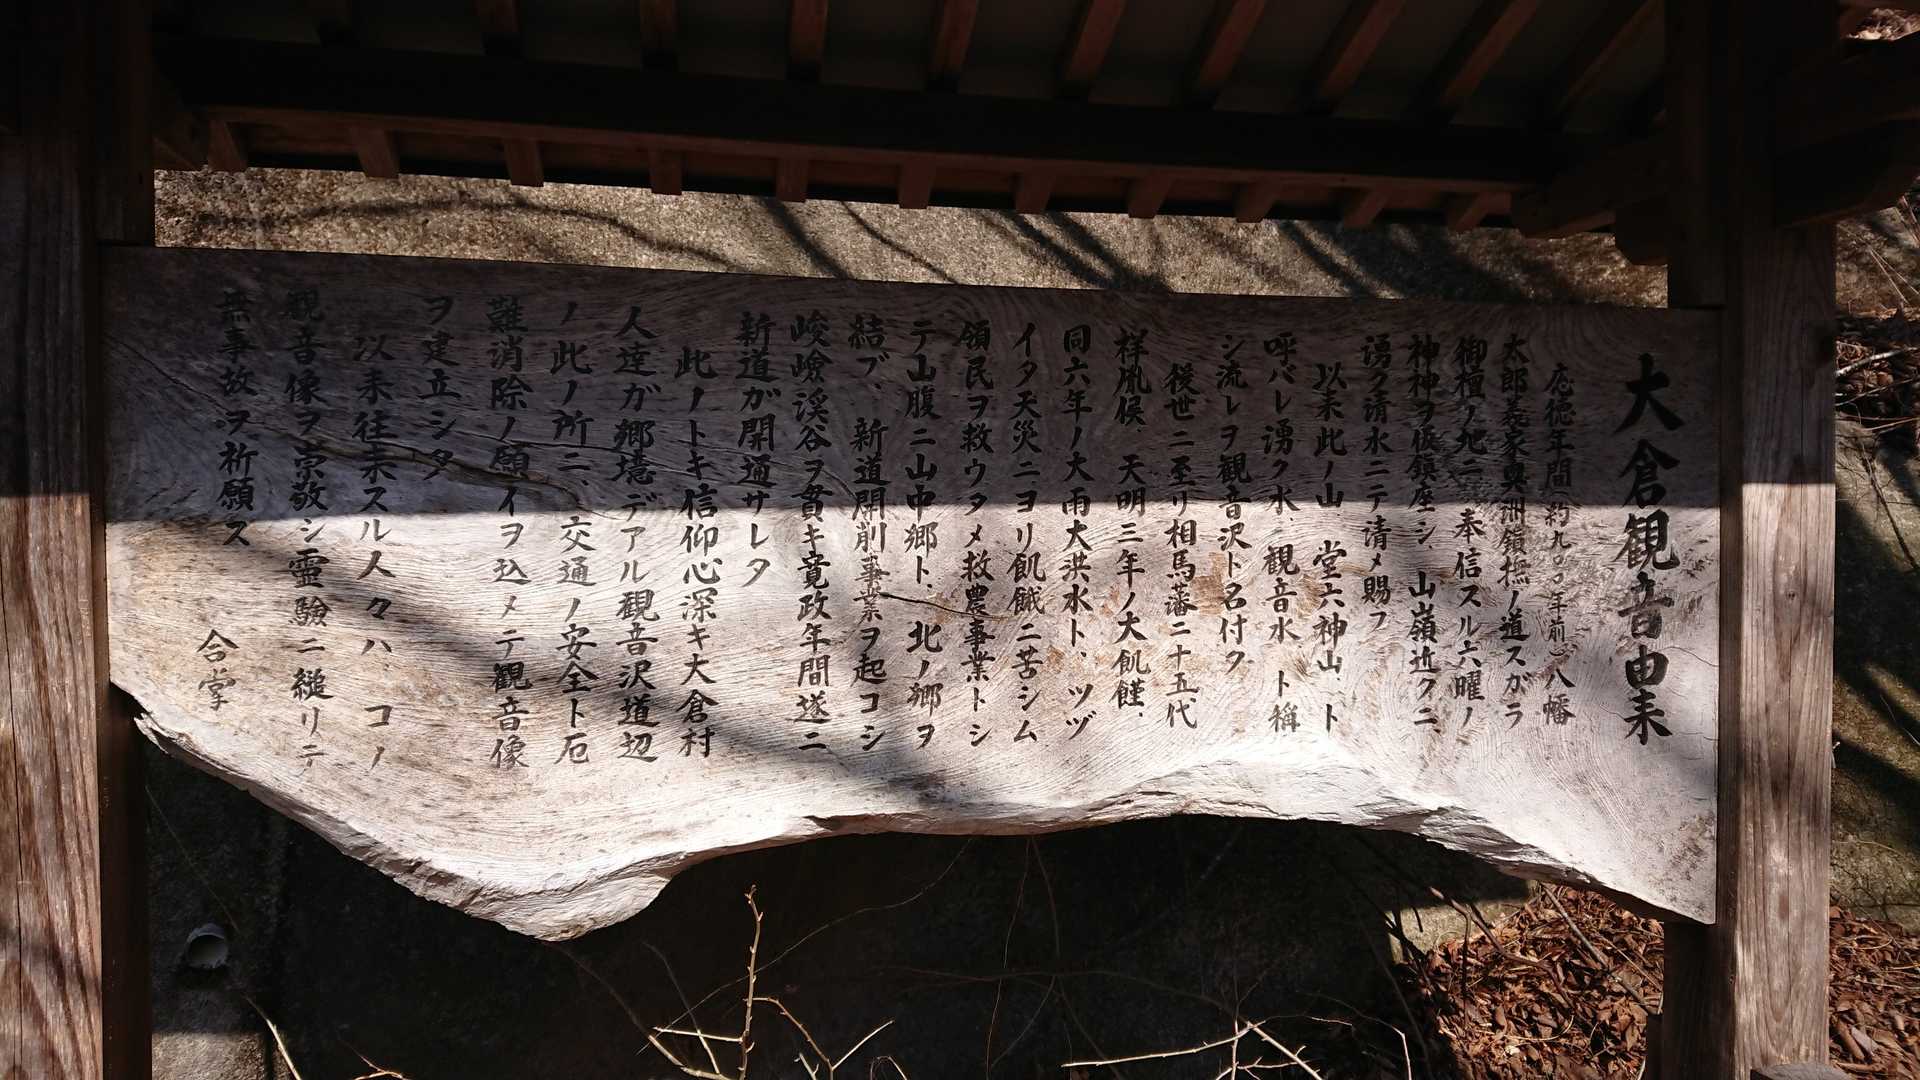 大倉観音由来
応徳年間(約九〇〇年前)、八幡
太郎義家奥洲鎮撫ノ道スガラ
御壇ノ地ニ奉信スル六曜ノ
神神ヲ仮鎮座シ、山嶺近クニ、
湧ク清水ニテ清メ賜フ
以来此ノ山 堂六神山 ト
呼バレ湧ク水、観音水 ト稱
シ流レヲ観音沢ト名付ク
後世ニ至リ相馬藩二十五代
祥胤候 天明三年ノ大飢饉、
同六年ノ大雨大洪水ト、ツヅ
イタ天災ニヨリ飢餓ニ苦シム
領民ヲ救ウタメ救農事業トシ
テ山腹ニ山中郷ト、北ノ郷ヲ
結ブ、新道開削事業ヲ起コシ
峻嶮渓谷ヲ貫キ寛政年間遂ニ
新道が開通サレタ
此ノトキ信仰心深キ大倉村
人達ガ郷境デアル観音沢道辺
ノ此ノ所ニ、交通ノ安全ト厄
難消除ノ願イヲ込メテ観音像
ヲ建立シタ
以来往来スル人々ハ、コノ
観音像ヲ崇敬シ霊験ニ縋リテ
無事故ヲ祈願ス
合掌